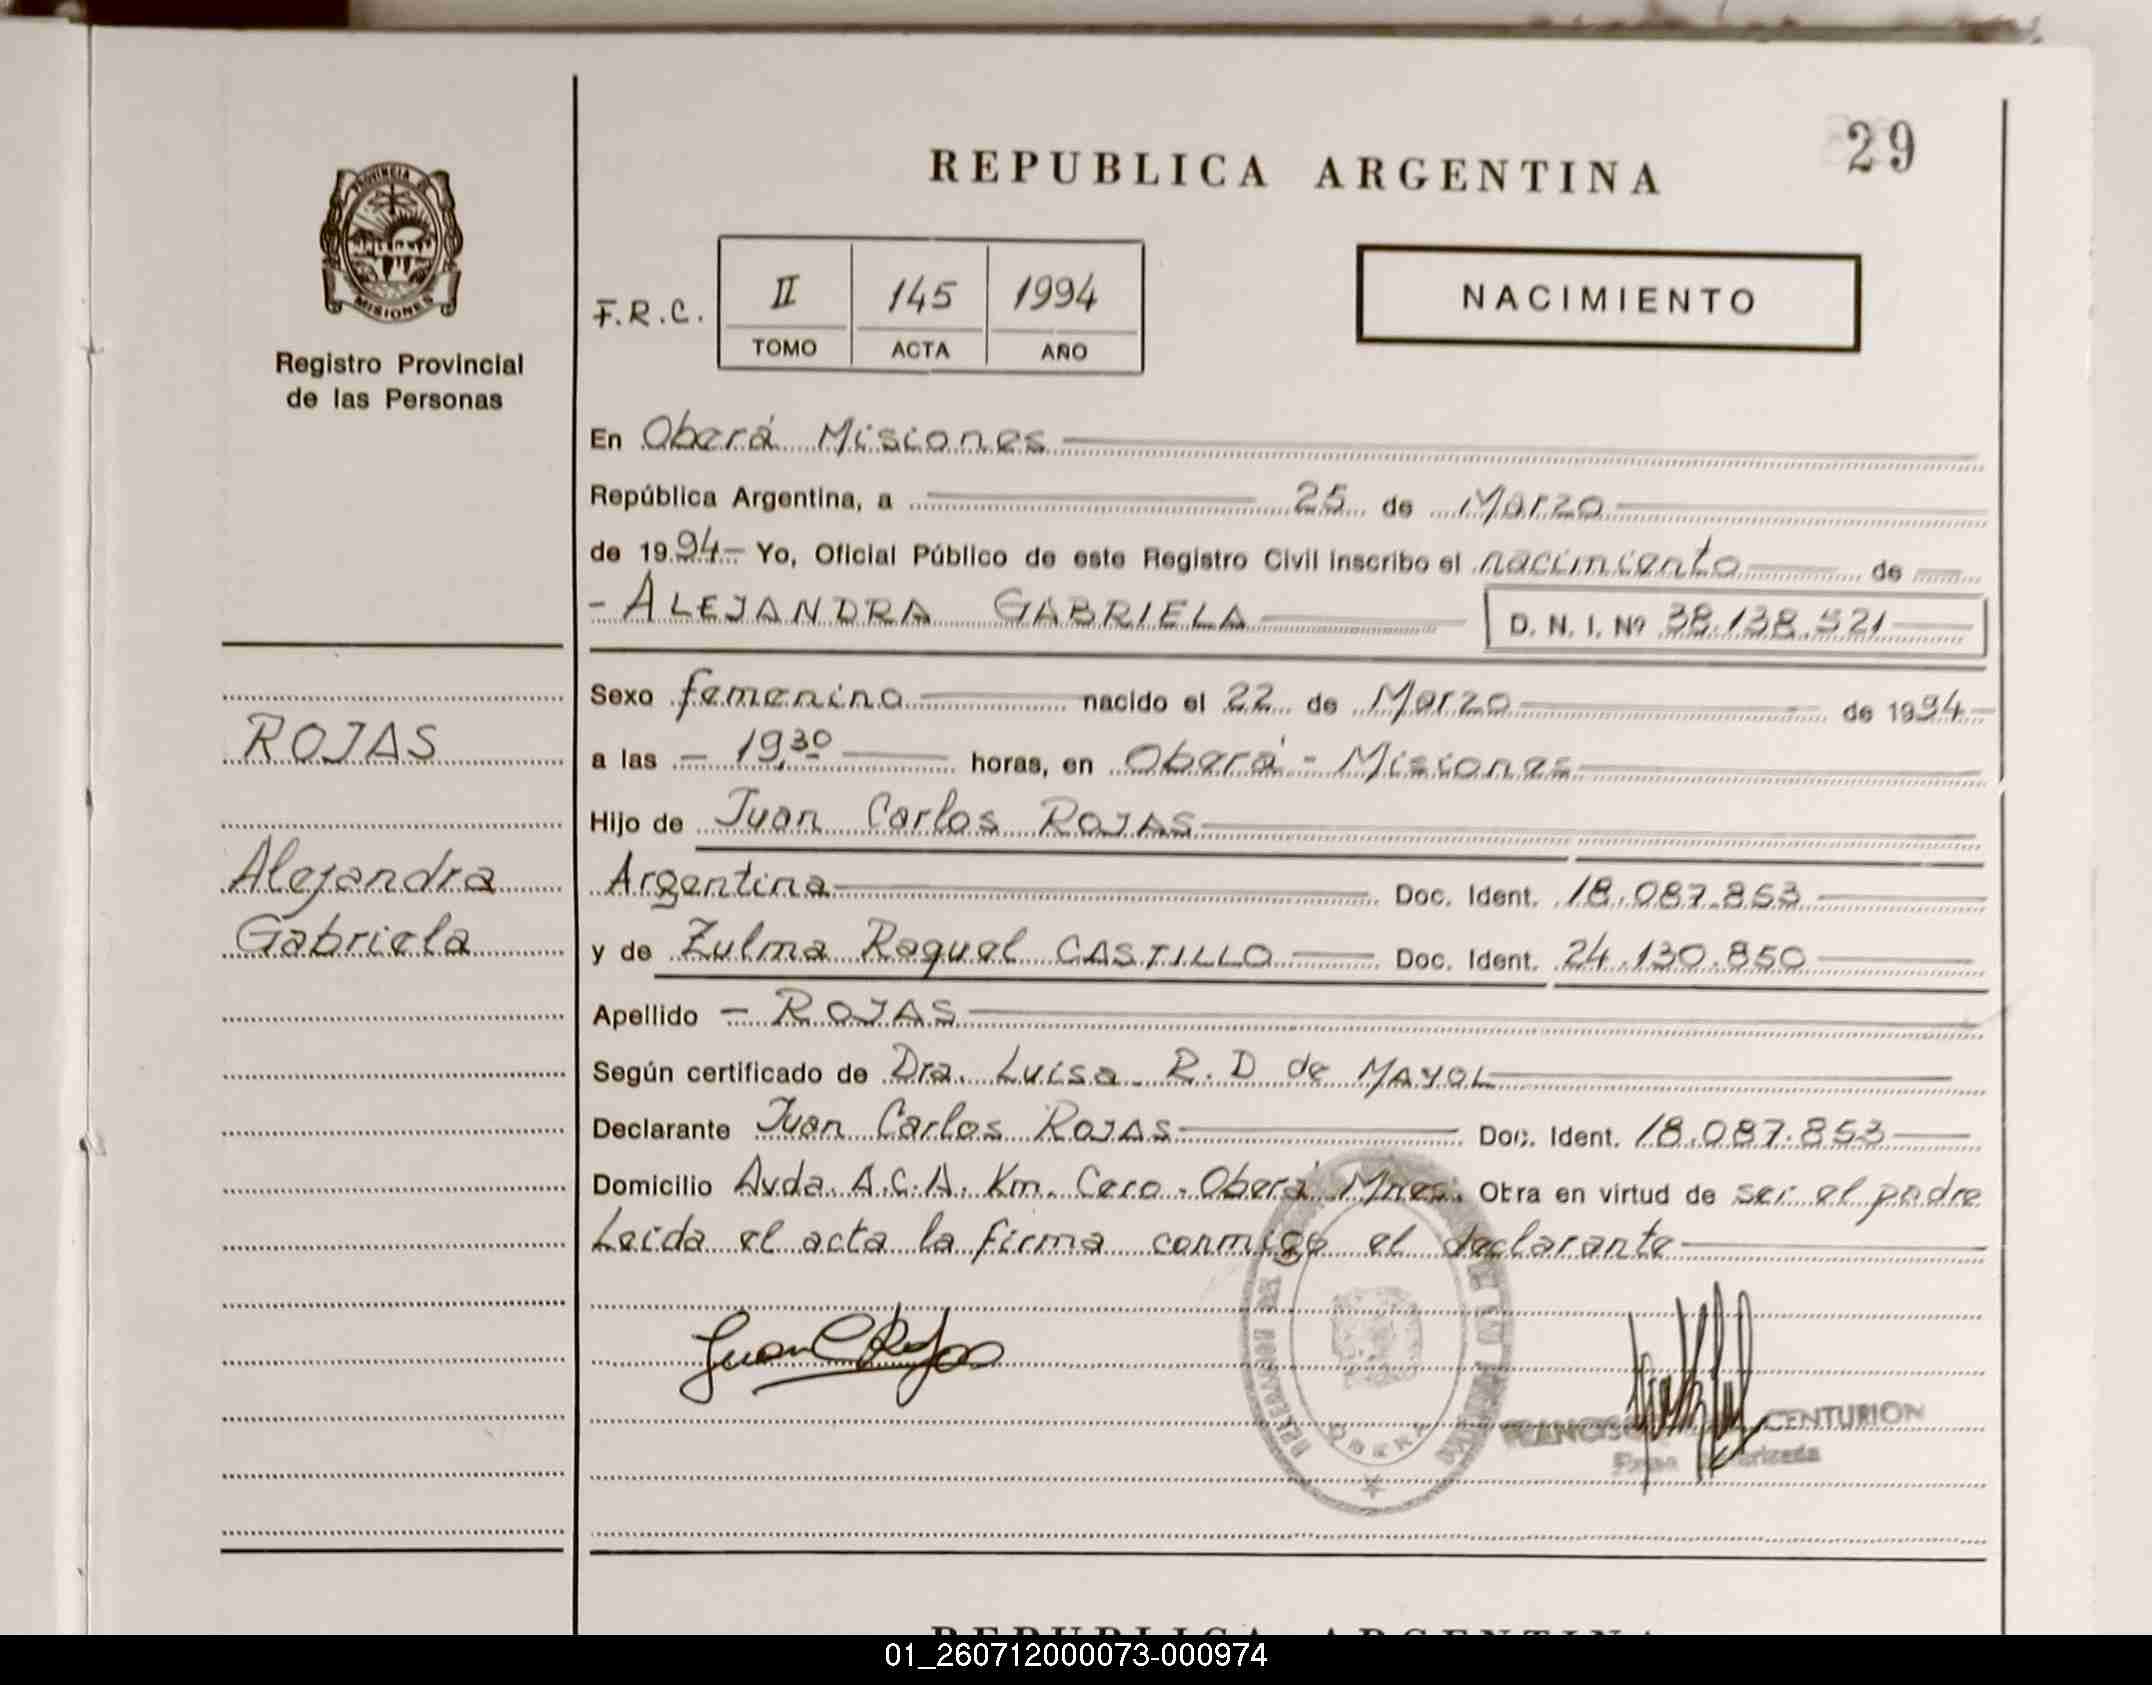 29
REPUBLICA ARGENTINA
PROVINCIA DE
MISIONES
Registro Provincial
de las Personas
F.R.C.
II 145 1994
TOMO ACTA AÑO
NACIMIENTO
En Oberá Misiones
República Argentina, a 25 de Marzo
de 1994 Yo, Oficial Público de este Registro Civil inscribo el nacimiento de
- ALEJANDRA GABRIELA D. N. I. Nº 38.138.521
Sexo femenino nacido el 22 de Marzo de 1994
a las - 19,30 horas, en Oberá - Misiones
Hijo de Juan Carlos ROJAS
Argentina Doc. Ident. 18.087.853
y de Zulma Raquel CASTILLO Doc. Ident. 24.130.850
Apellido - ROJAS
Según certificado de Dra. Luisa R. D de MAYOL
Declarante Juan Carlos ROJAS Doc. Ident. 18.087.853
Domicilio Avda. A.C.A. Km. Cero - Oberá Mnes. Obra en virtud de ser el padre
Leida el acta la firma conmigo el declarante
ROJAS
Alejandra
Gabriela
Juan C Rojas
OBERA
CENTURION
REPUBLICA ARGENTINA
01_260712000073-000974